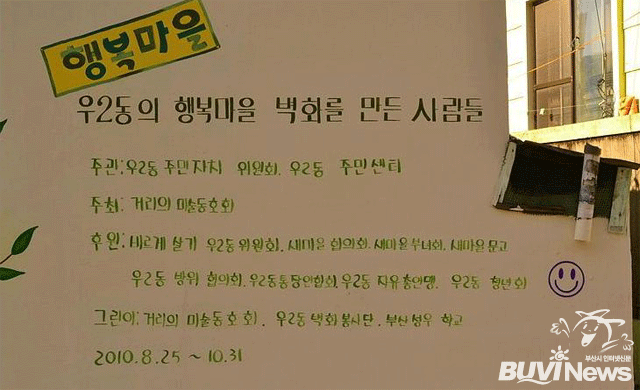 행복마을
우2동의 행복마을 벽화를 만든 사람들
주관:우2동 주민자치 위원회. 우2동 주민센터
주최: 거리의 미술동호회
후원:바르게 살기 우2동위원회, 새마을 협의회. 새마을부녀회. 새마을 문고
우2동 방위 협의회, 우2동통장연합회, 우2동 자유총연맹, 우2동 청년회
그린이:거리의 미술동호회, 우2동 벽화봉사단, 부산성우 학교
2010.8.25 ~ 10.31
부산시 인터넷신문
BUVI News